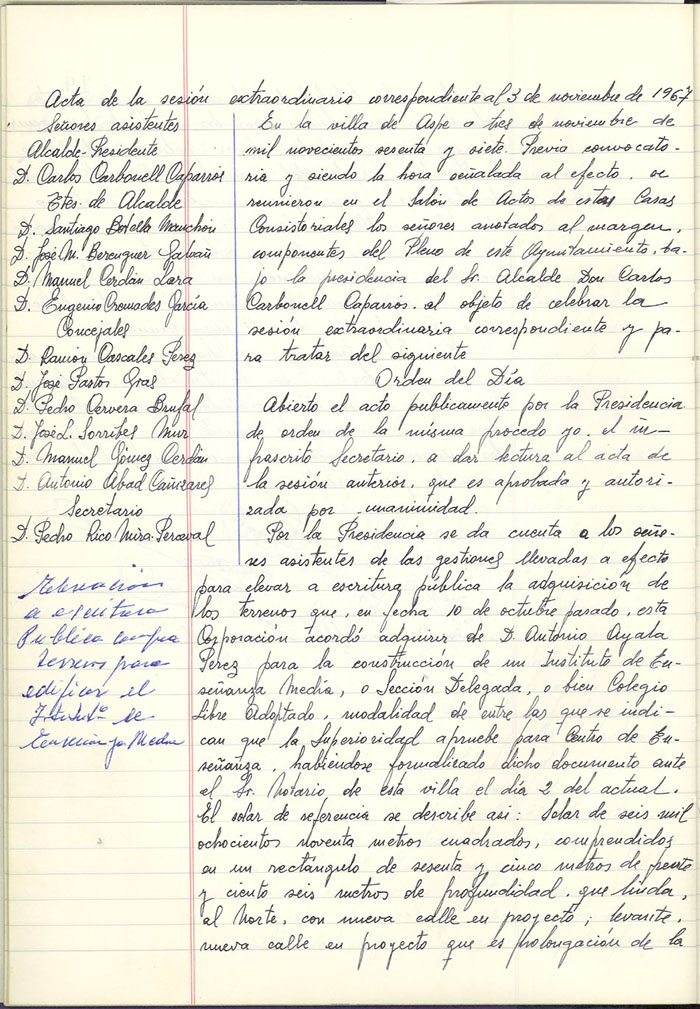 Acta de la sesión extraordinaria correspondiente al 3 de noviembre de 1967
Señores asistentes
Alcalde-Presidente
D. Carlos Carbonell Caparros
Ttes. de Alcalde
D. Santiago Botella Manchón
D. José M. Berenguer Galvañ
D. Manuel Cerdán Lara
D. Eugenio Cremades García
Concejales
D. Ramón Cascales Perez
D. José Pastos Gras
D. Pedro Cervera Brufal
D. José L. Sorribes Mur
D. Manuel Gómez Cerdán
D. Antonio Abad Cañizares
Secretario
D. Pedro Rico Mira-Perceval
En la villa de Aspe a tres de noviembre de
mil novecientos sesenta y siete. Previa convocato-
ria y siendo la hora señalada al efecto, se
reunieron en el Salón de Actos de estas Casas
Consistoriales los señores anotados al margen,
componentes del Pleno de este Ayuntamiento, ba-
jo la presidencia del Sr. Alcalde Don Carlos
Carbonell Caparros, al objeto de celebrar la
sesión extraordinaria correspondiente y pa-
ra tratar del siguiente
Orden del Día
Abierto el acto publicamente por la Presidencia
de orden de la misma procedo yo, el in-
frascrito Secretario, a dar lectura al acta de
la sesión anterior, que es aprobada y autori-
zada por unanimidad.
Por la Presidencia se da cuenta a los seño-
res asistentes de las gestiones llevadas a efecto
para elevar a escritura pública la adquisición de
los terrenos que, en fecha 10 de octubre pasado, esta
Corporación acordó adquirir de D. Antonio Ayala
Perez para la construcción de un Instituto de En-
señanza Media, o Sección Delegada, o bien Colegio
Libre Adoptado, modalidad de entre las que se indi-
can que la Superioridad apruebe para Centro de En-
señanza, habiéndose formalizado dicho documento ante
el Sr. Notario de esta villa el día 2 del actual.
El solar de referencia se describe asi: Solar de seis mil
ochocientos noventa metros cuadrados, comprendidos
en un rectángulo de sesenta y cinco metros de frente
y ciento seis metros de profundidad, que linda,
al Norte, con nueva calle en proyecto; levante,
nueva calle en proyecto que es prolongación de la
a escritura
Publica compra
terrenos para
edificar el
Instituto de
Enseñanza Media